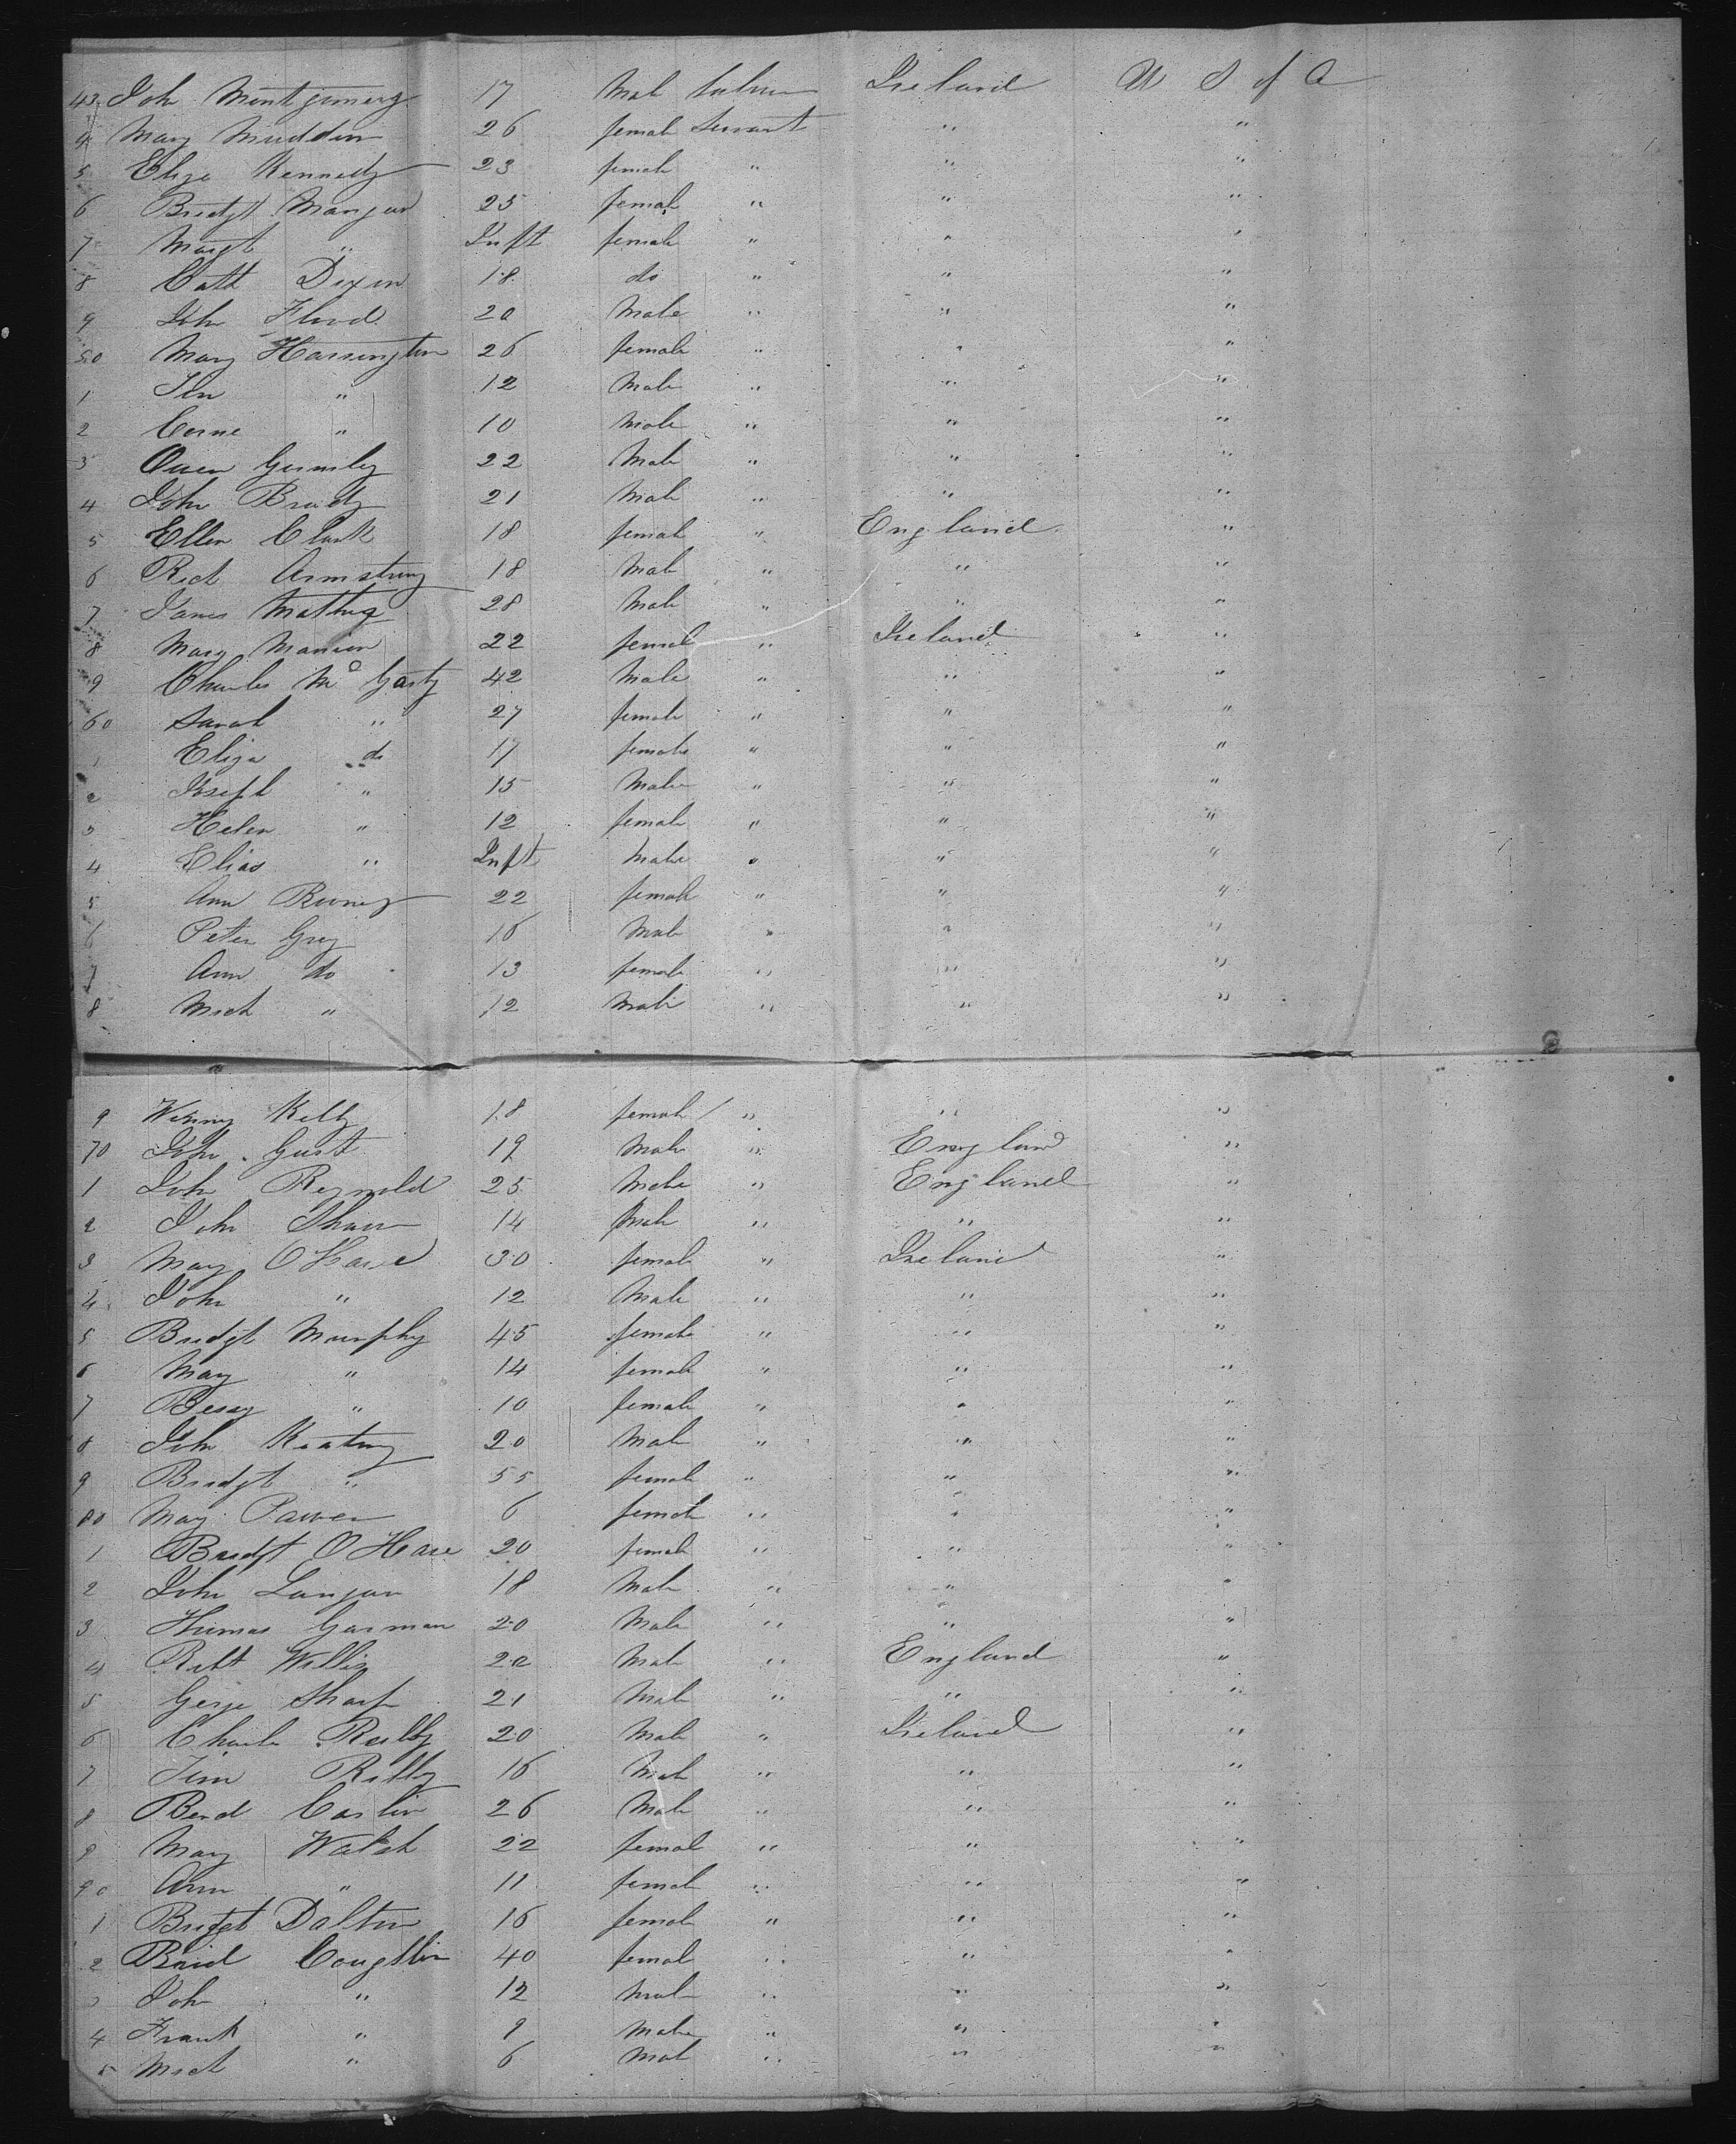 43 John Montgomery 17 Male Ireland U S of A
4 Mary Madden 26 female Servant " "
5 Eliza Kennedy 23 female " " "
6 Bridgt Mangan 25 female " " "
7 Margt " Inft female " " "
8 Cath Dixon 18 do " " "
9 John Flood 20 Male " " "
50 Mary Harrington 26 female " " "
1 " 12 Male " " "
2 Corne " 10 Male " " "
3 Owen Gormley 22 Male " " "
4 John Brady 21 Male " " "
5 Ellen Clark 18 female " England "
6 Rich Armstrong 18 Male " " "
7 James Mathes 28 Male " " "
8 Mary Mannion 22 female " Ireland "
9 Charles Mc Garty 42 Male " " "
60 Sarah " 27 female " " "
1 Eliza do 17 female " " "
2 Joseph " 15 Male " " "
3 Helen " 12 female " " "
4 Elias " Inft Male " " "
5 Ann Rooney 22 female " " "
6 Peter Grey 16 Male " " "
7 Ann do 13 female " " "
8 Mich " 12 Male " " "
9 Kelly 18 female " " "
70 John Gust 19 Male " England "
1 John Reynold 25 Male " England "
2 John Shaw 14 Male " " "
3 Mary O Hare 30 female " Ireland "
4 John " 12 Male " " "
5 Bridgt Murphy 45 female " " "
6 Mary " 14 female " " "
7 Bessy " 10 female " " "
8 John Keating 20 Male " " "
9 Bridgt " 55 female " " "
80 Mary Power 6 female " " "
1 Bridgt O Hare 20 female " " "
2 John Langan 18 Male " " "
3 Thomas Gorman 20 Male " " "
4 Robt Willis 20 Male " England "
5 George Sharp 21 Male " " "
6 Charle Reilly 20 Male " Ireland "
7 Jim Reilly 16 Male " " "
8 Bernd Carlin 26 Male " " "
9 Mary Walsh 22 female " " "
90 Ann " 11 female " " "
1 Bridget Dalton 16 female " " "
2 Coughlin 40 female " " "
3 John " 12 Male " " "
4 Frank " 9 Male " " "
5 Mich " 6 Male " " "